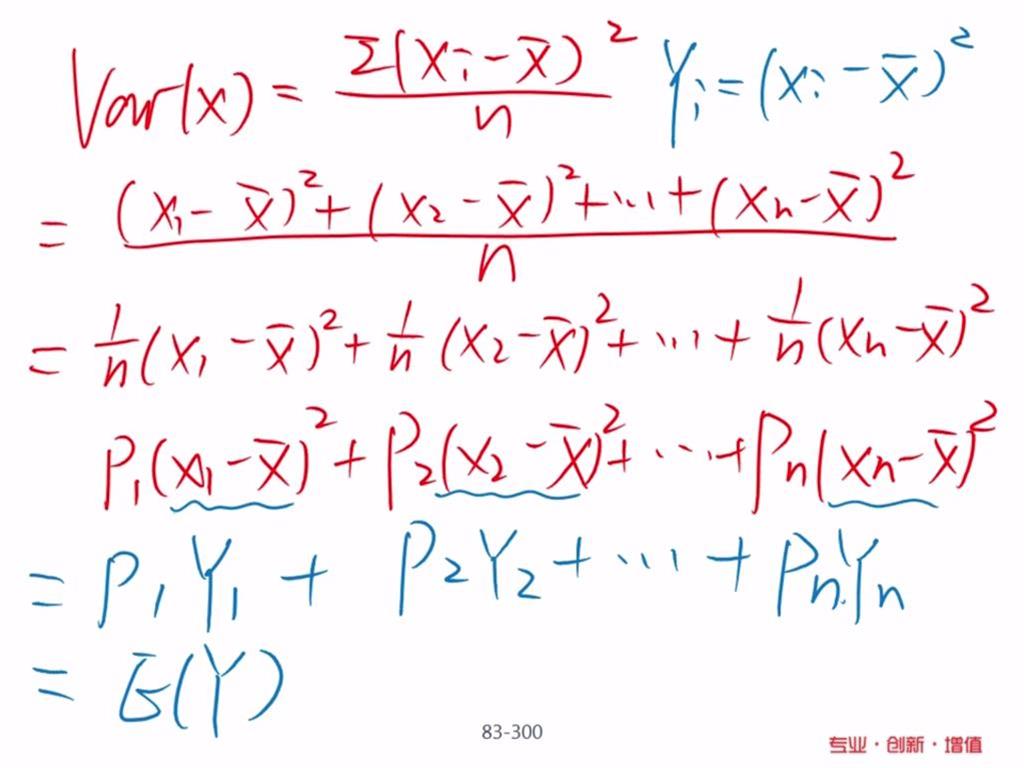 Var(x) = Σ(xᵢ - x̄)² / n   Yᵢ = (xᵢ - x̄)²
= (x₁ - x̄)² + (x₂ - x̄)² + ... + (xₙ - x̄)² / n
= 1/n (x₁ - x̄)² + 1/n (x₂ - x̄)² + ... + 1/n (xₙ - x̄)²
P₁(x₁ - x̄)² + P₂(x₂ - x̄)² + ... + Pₙ(xₙ - x̄)²
= P₁Y₁ + P₂Y₂ + ... + PₙYₙ
= E(Y)
83-300
专业·创新·增值